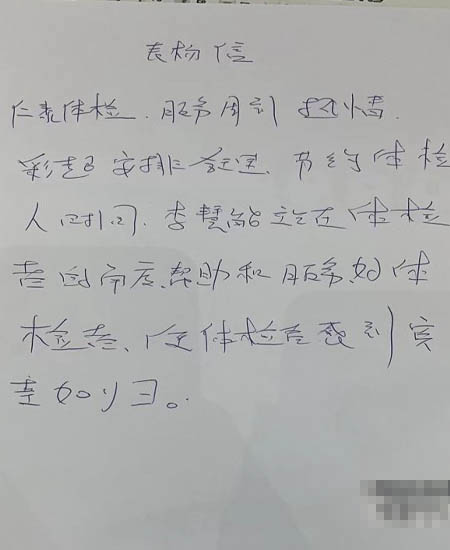 表扬信
仁素体检.服务周到 热情.
彩超安排合理.节约体检
人时间.李慧能站在体检
者的角度.帮助和服务如体
检者、使体检者感到宾
至如归。